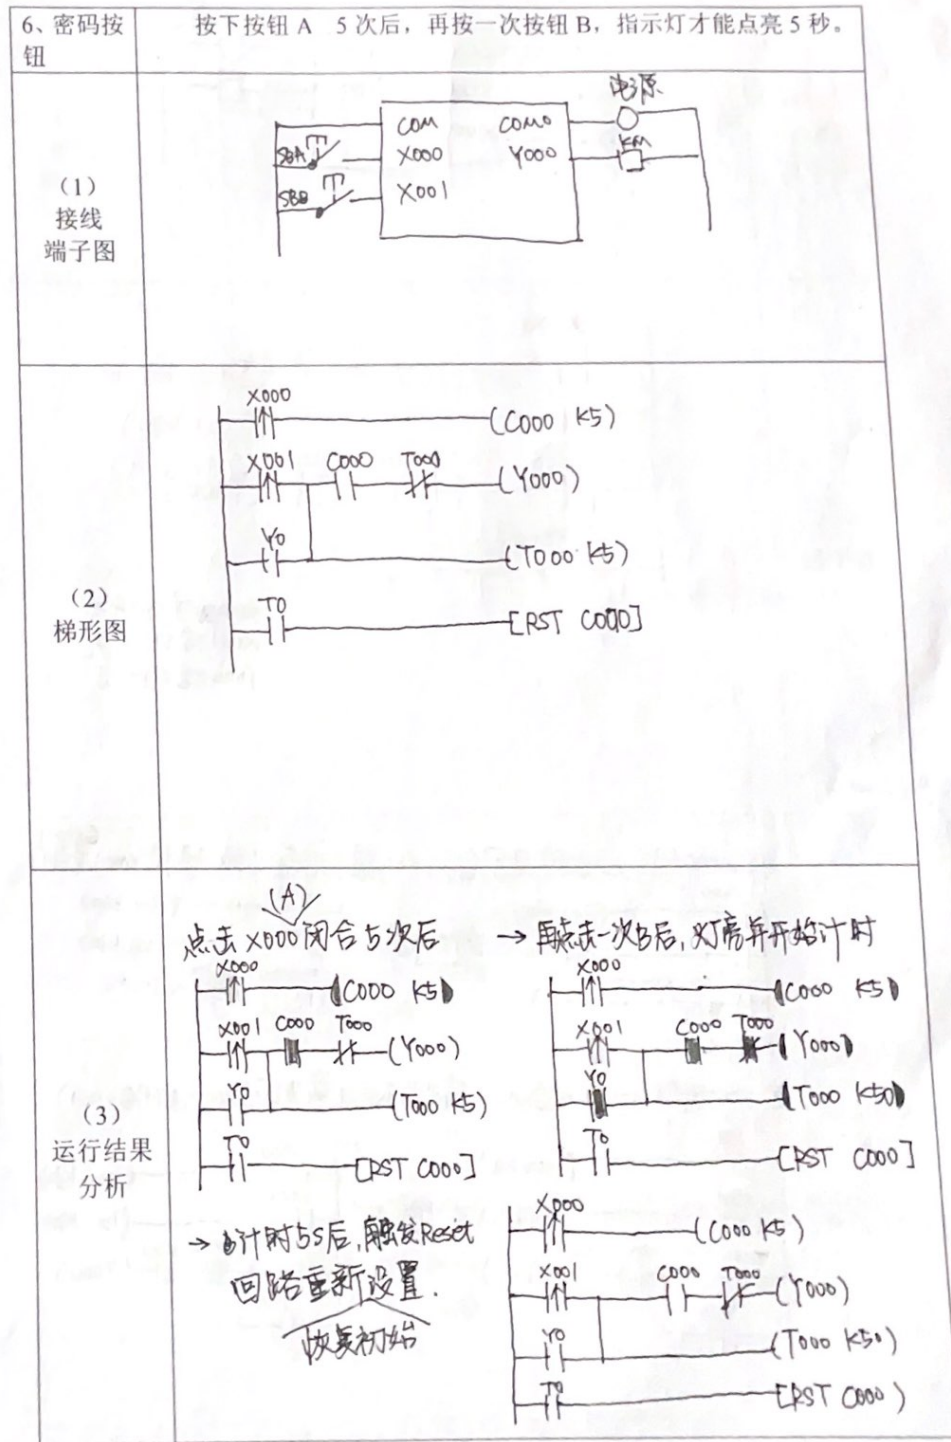 6、密码按钮
按下按钮 A 5 次后，再按一次按钮 B，指示灯才能点亮 5 秒。
（1）
接线
端子图
电源
COM COM0
SBA X000 Y000 KM
SBB X001
（2）
梯形图
X000
(C000 K5)
X001 C000 T000
(Y000)
Y0
(T000 K5)
T0
[RST C000]
（3）
运行结果
分析
(A)
点击X000闭合5次后
X000
(C000 K5)
X001 C000 T000
(Y000)
Y0
(T000 K5)
T0
[RST C000]
→ 再点击一次B后，灯亮并开始计时
X000
(C000 K5)
X001 C000 T000
(Y000)
Y0
(T000 K50)
T0
[RST C000]
→ 计时5S后，触发Reset
回路重新设置.
恢复初始
X000
(C000 K5)
X001 C000 T000
(Y000)
Y0
(T000 K50)
T0
[RST C000)